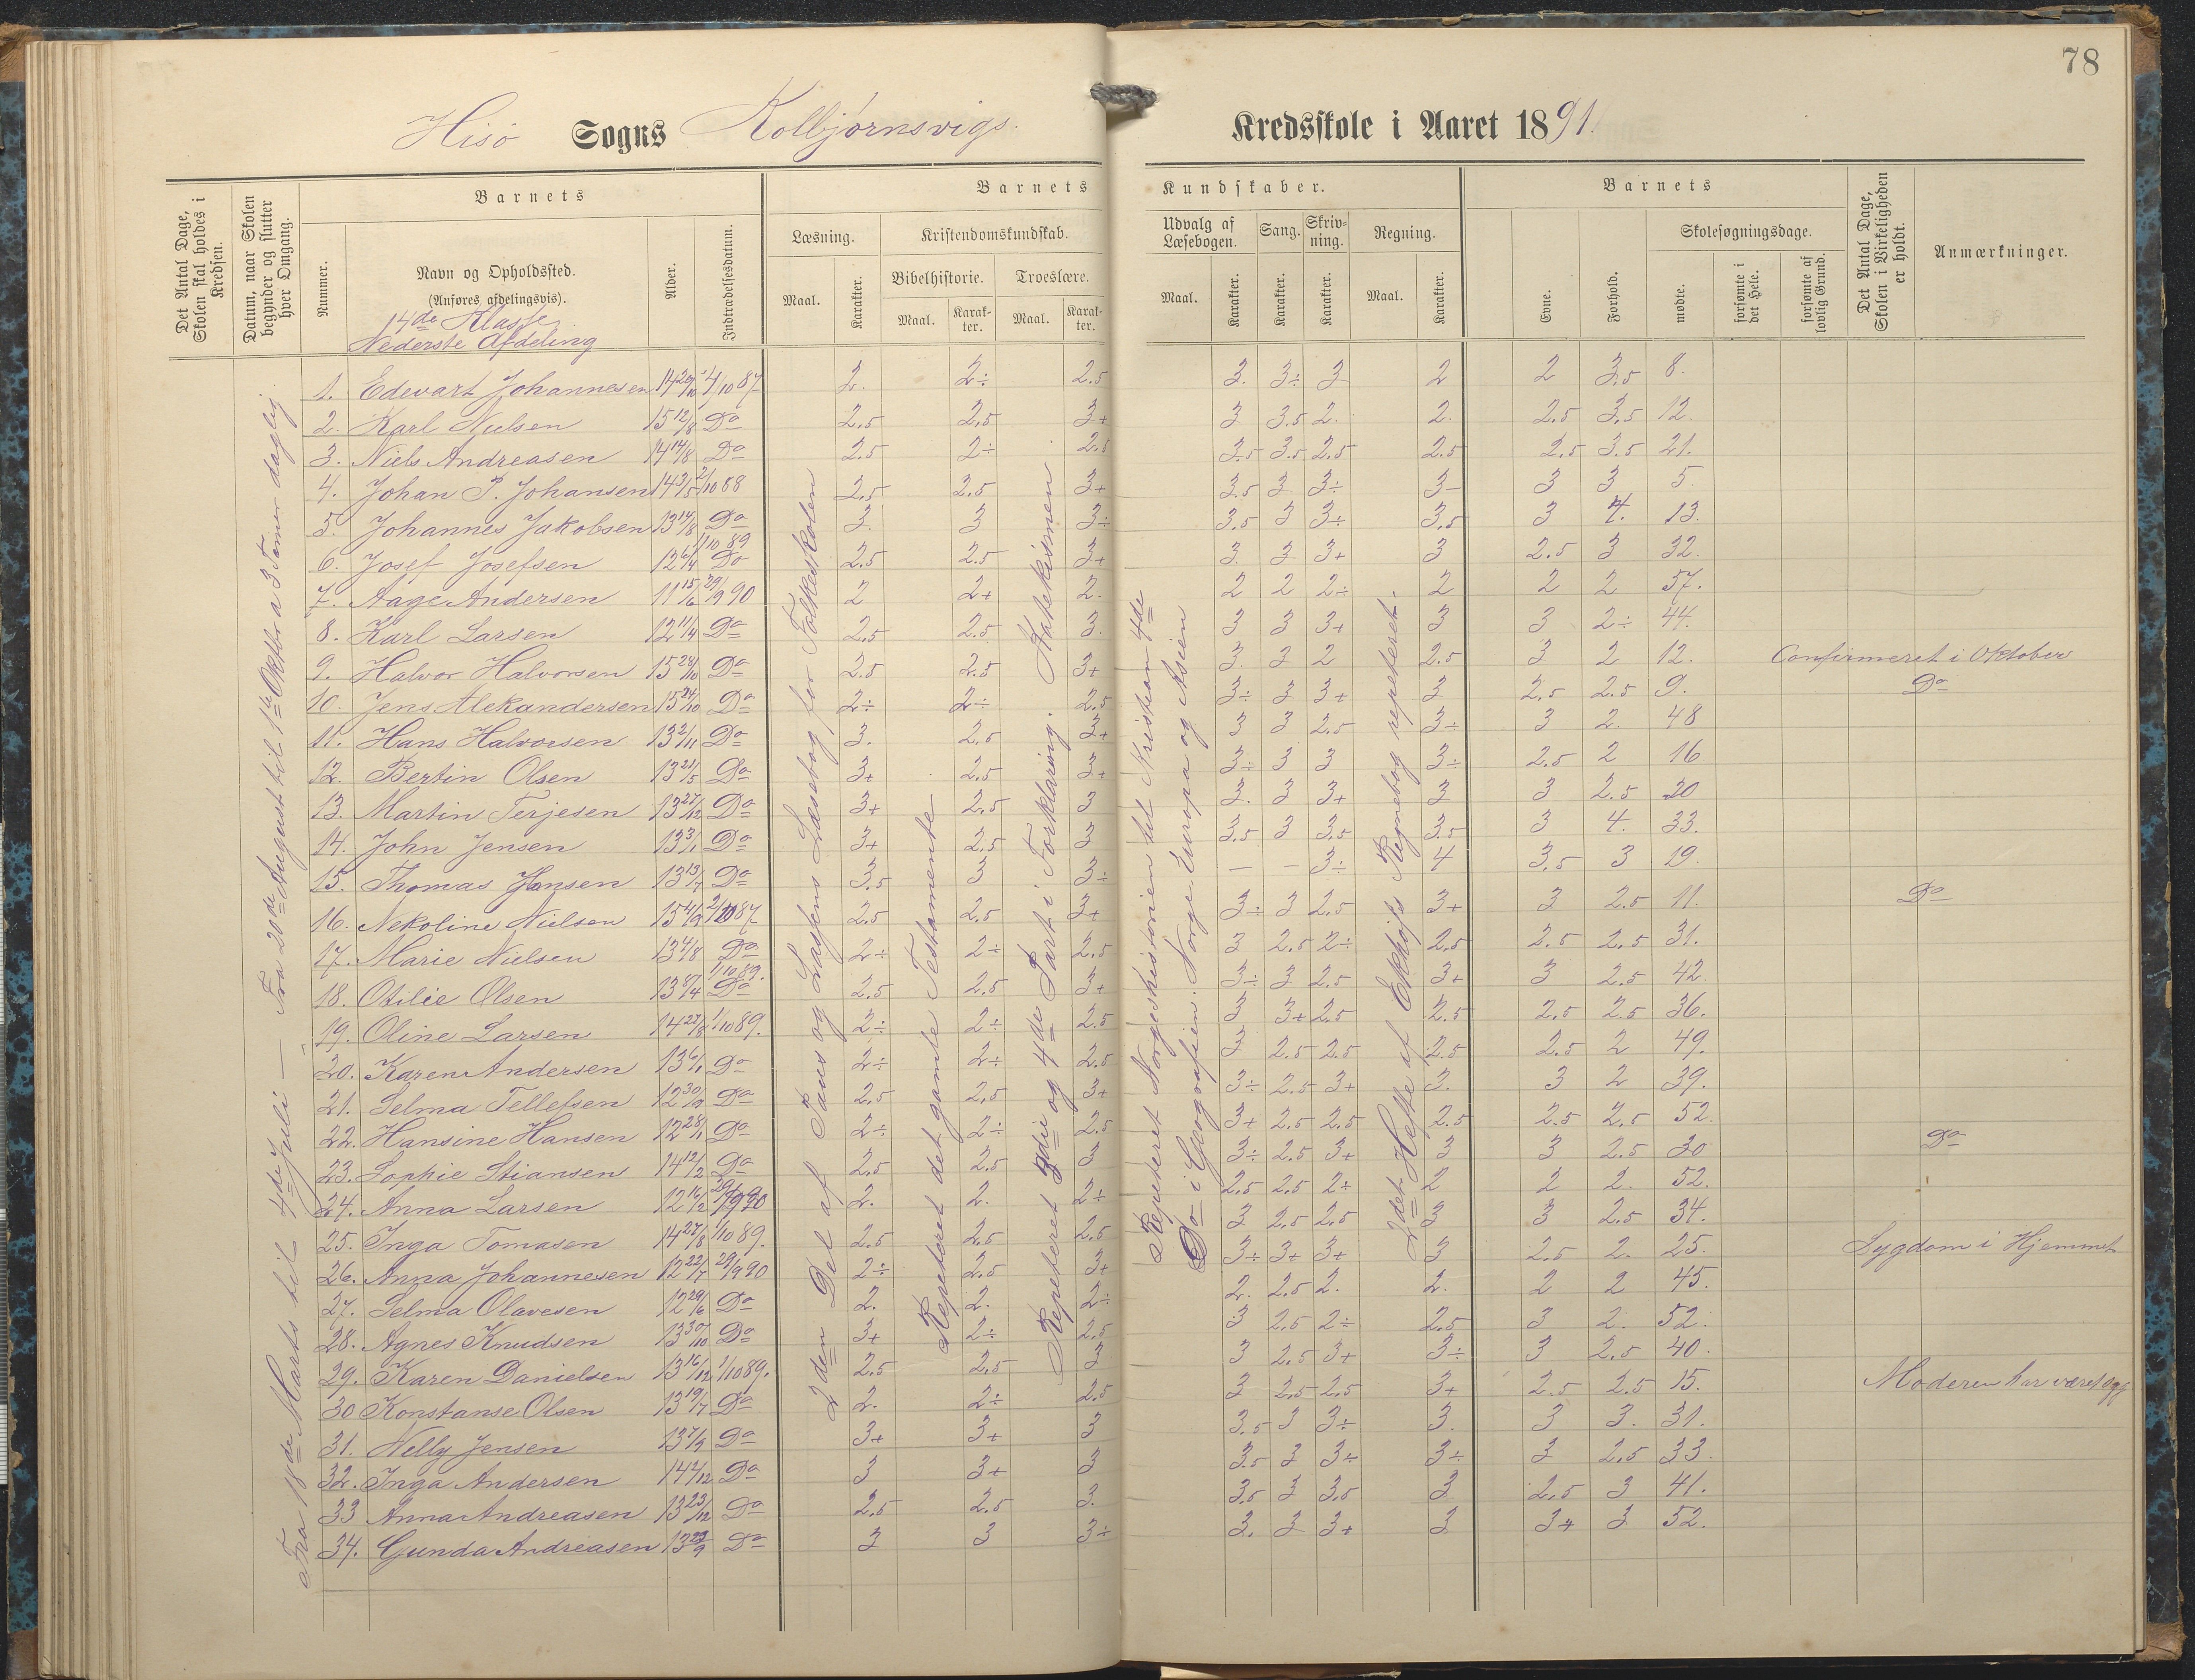 78
Hisö Sogns Kolbjørnsvigs. Kredsskole i Aaret 1891.
Det Antal Dage, Skolen skal holdes i Kredsen.
Datum, naar Skolen begynder og slutter hver Omgang.
Barnets
Nummer.
Navn og Opholdssted.
(Anføres afdelingsvis).
Alder.
Indtrædelsesdatum.
Barnets Kundskaber.
Læsning.
Kristendomskundskab.
Udvalg af Læsebogen.
Sang.
Skrivning.
Regning.
Maal.
Karakter.
Bibelhistorie.
Troeslære.
Maal. Karakter. Maal. Karakter.
Maal. Karakter. Karakter. Karakter. Maal. Karakter.
Barnets
Evne.
Forhold.
Skolesøgningsdage.
mødte.
forsømte i det Hele.
forsømte af lovlig Grund.
Det Antal Dage, Skolen i Virkeligheden er holdt.
Anmærkninger.
14de Klasse
Nederste Afdeling
Fra 18de Marts til 4de Juli — Fra 20de August til 1ste Oktbr a 3 Timer daglig.
2den Del af Paus og Lassens Læsebog for Folkeskolen
Repeteret det gamle Testamente
Repeteret 3die og 4de Part i Forklaring. Katekismen
Repeteret Norgeshistorien til Kristian 4de
Do i Geografien: Norge Europa og Asien
2det Hefte af Ekhofs Regnebog repeteret.
1. Edevart Johannesen 14 29/10 4/10 87 2. 2÷ 2.5 3. 3÷ 3 2 2 3.5 8.
2. Karl Nielsen 15 12/8 Do 2.5 2.5 3+ 3 3.5 2. 2. 2.5 3.5 12.
3. Niels Andreasen 14 14/8 Do 2.5 2÷ 2.5 3.5 3.5 2.5 2.5 2.5 3.5 21.
4. Johan P. Johansen 14 3/5 2/10 88 2.5 2.5 3+ 3.5 3 3÷ 3- 3 3 5.
5. Johannes Jakobsen 13 14/8 Do 3. 3 3÷ 3.5 3 3÷ 3.5 3 4. 13.
6. Josef Josefsen 12 6/4 1/10 89 Do 2.5 2.5 3+ 3. 3 3+ 3 2.5 3 32.
7. Aage Andersen 11 15/6 29/9 90 2 2+ 2. 2 2 2÷ 2 2 2 57.
8. Karl Larsen 12 11/4 Do 2.5 2.5 3. 3 3 3+ 3 3 2÷ 44.
9. Halvor Halvorsen 15 28/10 Do 2.5 2.5 3+ 3. 3 2 2.5 3 2 12. Confirmeret i Oktober
10. Jens Alekandersen 15 24/10 Do 2÷ 2÷ 2.5 3÷ 3 3+ 3 2.5 2.5 9. Do
11. Hans Halvorsen 13 2/11 Do 3. 2.5 3+ 3 3 2.5 3÷ 3 2. 48
12. Bertin Olsen 13 21/5 Do 3+ 2.5 3+ 3÷ 3 3 3÷ 2.5 2 16
13. Martin Terjesen 13 27/12 Do 3+ 2.5 3 3. 3 3+ 3 3 2.5 20
14. John Jensen 13 3/1 Do 3+ 2.5 3 3.5 3 3.5 3.5 3 4. 33.
15. Thomas Hansen 13 13/7 Do 3.5 3 3÷ — — 3÷ 4 3.5 3 19.
16. Nekoline Nielsen 15 4/9 2/10 87 2.5 2.5 3+ 3÷ 3 2.5 3+ 3 2.5 11. Do
17. Marie Nielsen 13 4/8 Do 2÷ 2÷ 2.5 3 2.5 2÷ 2.5 2.5 2.5 31.
18. Otilie Olsen 13 8/4 1/10 89. Do 2.5 2.5 3+ 3÷ 3 2.5 3+ 3 2.5 42.
19. Oline Larsen 14 27/8 1/10 89. 2÷ 2÷ 2.5 3 3+ 2.5 2.5 2.5 2.5 36.
20. Karen Andersen 13 6/1 Do 2÷ 2÷ 2.5 3 2.5 2.5 2.5 2.5 2 49.
21. Selma Tellefsen 12 30/9 Do 2.5 2.5 3+ 3÷ 2.5 3+ 3. 3 2 39.
22. Hansine Hansen 12 28/11 Do 2÷ 2÷ 2.5 3+ 2.5 2.5 2.5 2.5 2.5 52.
23. Sophie Stiansen 14 12/2 Do 2.5 2.5 3 3÷ 2.5 3+ 3 3 2.5 30 Do
24. Anna Larsen 12 16/2 29/9 90 2. 2. 2÷ 2.5 2.5 2÷ 2 2 2. 52.
25. Inga Tomasen 14 27/8 1/10 89. 2.5 2.5 2.5 3 2.5 2.5 3 3 2.5 34.
26. Anna Johannesen 12 22/7 29/9 90 2÷ 2.5 3+ 3÷ 3+ 3+ 3 2.5 2. 25. Sygdom i Hjemmet
27. Selma Olavesen 12 29/6 Do 2. 2. 2÷ 2. 2.5 2. 2. 2 2 45.
28. Agnes Knudsen 13 30/10 Do 3+ 2÷ 2.5 3 2.5 2÷ 2.5 3 2. 52.
29. Karen Danielsen 13 16/12 1/10 89. 2.5 2.5 3 3 2.5 3+ 3÷ 3 2.5 40.
30 Konstanse Olsen 13 19/7 Do 2. 2÷ 2.5 3 2.5 2.5 3+ 2.5 2.5 15. Moderen har været syg
31. Nelly Jensen 13 7/9 Do 3+ 3+ 3 3.5 3 3÷ 3. 3 3. 31.
32. Inga Andersen 14 4/12 Do 3 3+ 3 3.5 3 3÷ 3÷ 3 2.5 33.
33 Anna Andreasen 13 23/12 Do 2.5 2.5 3. 3.5 3 3.5 3 2.5 3 41.
34. Gunda Andreasen 13 22/9 Do 3 3 3÷ 3. 3 3+ 3 3+ 3 52.